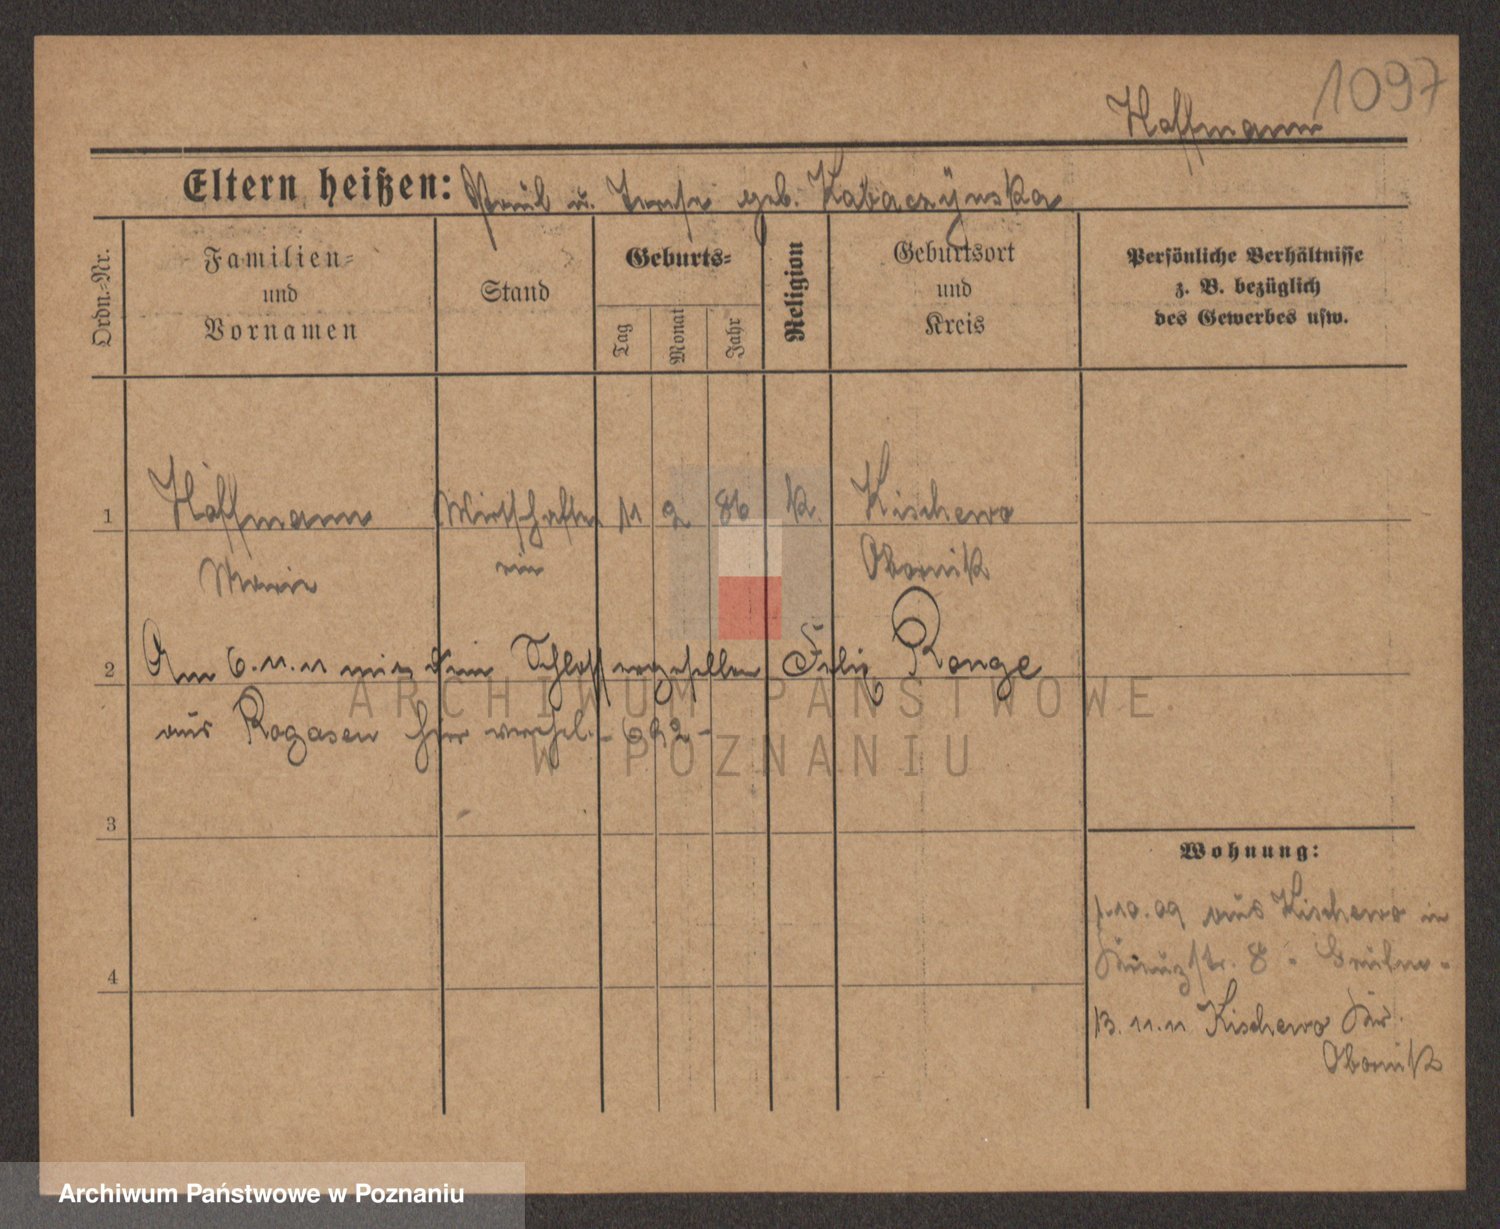 1097
Hoffmann
Eltern heißen: Paul u. Terese geb. Kabaczynska
Ordn.-Nr.
Familien-
und
Vornamen
Stand
Geburts-
Tag
Monat
Jahr
Religion
Geburtsort
und
Kreis
Persönliche Verhältnisse
z. B. bezüglich
des Gewerbes usw.
1 Hoffmann Wirtschafter 11 2 86 k. Kischewo
Marie in Obornik
2 Am 6.11.11 mit dem Schlossergesellen Felix Range
aus Rogasen hier verehel. - 692 -
3
4
Wohnung:
1.10.09 aus Kischewo in
Kreuzstr. 8
13.11.11 Kischewo Kr.
Obornik
ARCHIWUM PAŃSTWOWE
W POZNANIU
Archiwum Państwowe w Poznaniu